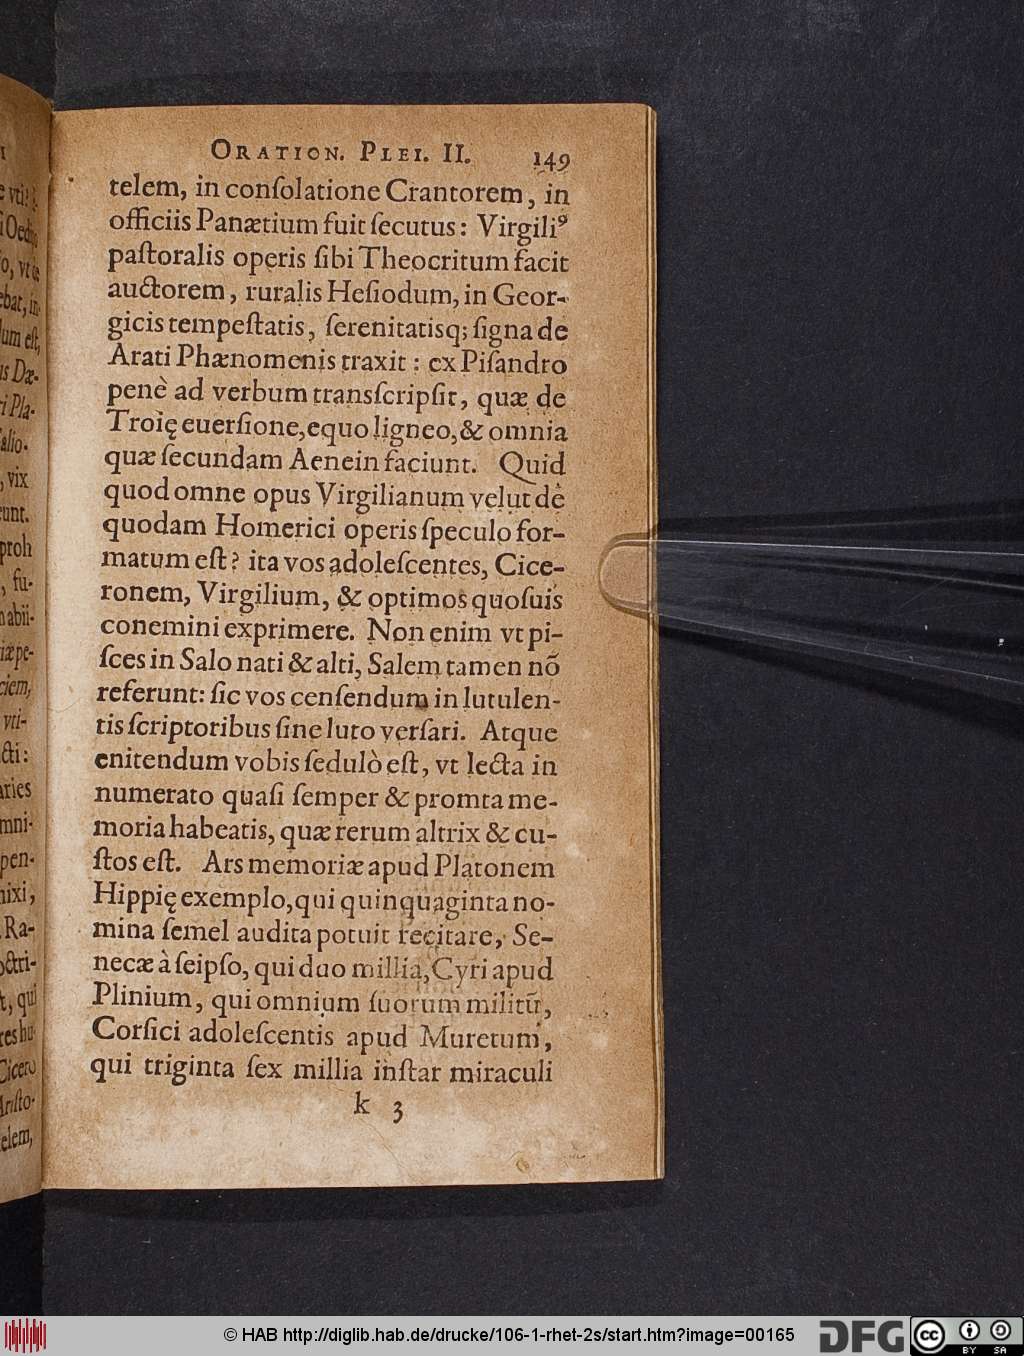 ORATION. PLEI. II. 149
telem, in conſolatione Crantorem, in
officiis Panætium fuit ſecutus: Virgiliꝰ
paſtoralis operis ſibi Theocritum facit
auctorem, ruralis Heſiodum, in Geor-
gicis tempeſtatis, ſerenitatisq; ſigna de
Arati Phænomenis traxit: ex Piſandro
penè ad verbum transſcripſit, quæ de
Troię euerſione, equo ligneo, & omnia
quæ ſecundam Aenein faciunt. Quid
quod omne opus Virgilianum velut dè
quodam Homerici operis ſpeculo for-
matum eſt? ita vos adoleſcentes, Cice-
ronem, Virgilium, & optimos quoſuis
conemini exprimere. Non enim vt pi-
ſces in Salo nati & alti, Salem tamen nõ
referunt: ſic vos cenſendum in lutulen-
tis ſcriptoribus ſine luto verſari. Atque
enitendum vobis ſedulò eſt, vt lecta in
numerato quaſi ſemper & promta me-
moria habeatis, quæ rerum altrix & cu-
ſtos eſt. Ars memoriæ apud Platonem
Hippię exemplo, qui quinquaginta no-
mina ſemel audita potuit recitare, Se-
necæ à ſeipſo, qui duo millia, Cyri apud
Plinium, qui omnium ſuorum militũ,
Corſici adoleſcentis apud Muretum,
qui triginta ſex millia inſtar miraculi
k 3
© HAB http://diglib.hab.de/drucke/106-1-rhet-2s/start.htm?image=00165
DFG
cc BY SA